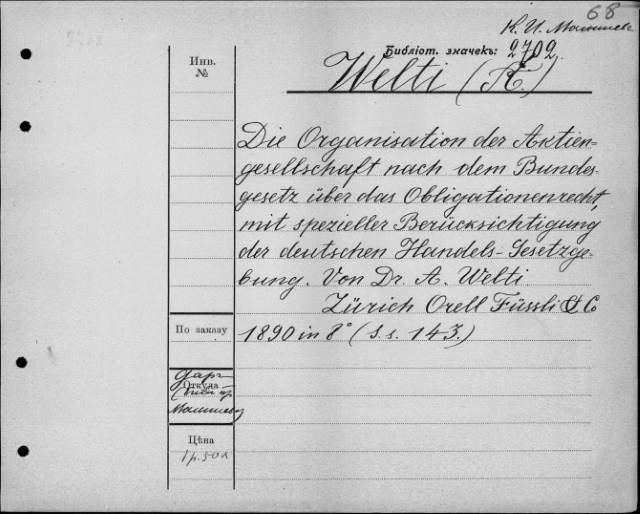 68
К. И. Малышев
Инв.
№
Библіот. значекъ: 2702.
Welti (A.)
Die Organisation der Aktien=
gesellschaft nach dem Bundes-
gesetz über das Obligationenrecht,
mit spezieller Berücksichtigung
der deutschen Handels-Gesetzge-
bung. Von Dr. A. Welti
Zürich Orell Füssli & Co
По заказу
1890 in 8° (S. s. 143.)
Даръ
Откуда
Малышева
Цѣна
1 р. 50 к